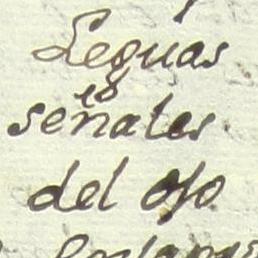 Leguas
18
señales
del oso